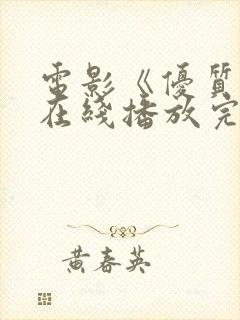 電影《優質
在綫播放完
黄春英